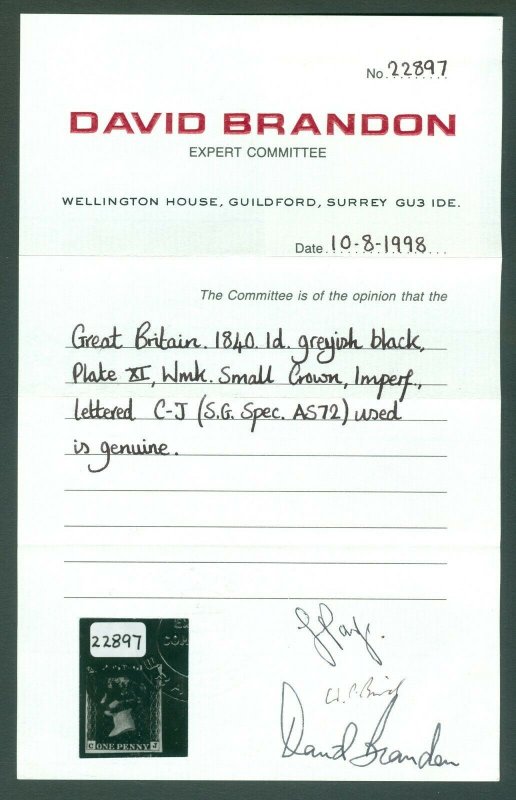 No. 22897
DAVID BRANDON
EXPERT COMMITTEE
WELLINGTON HOUSE, GUILDFORD, SURREY GU3 1DE.
Date 10-8-1998
The Committee is of the opinion that the
Great Britain. 1840. 1d. greyish black,
Plate XI, Wmk. Small Crown, Imperf.,
lettered C-J (S.G. Spec. AS72) used
is genuine.
22897
C ONE PENNY J
David Brandon